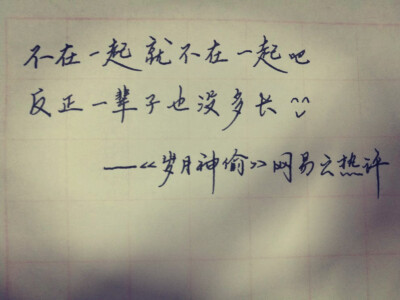 不在一起就不在一起吧
反正一辈子也没多长
——《岁月神偷》网易云热评